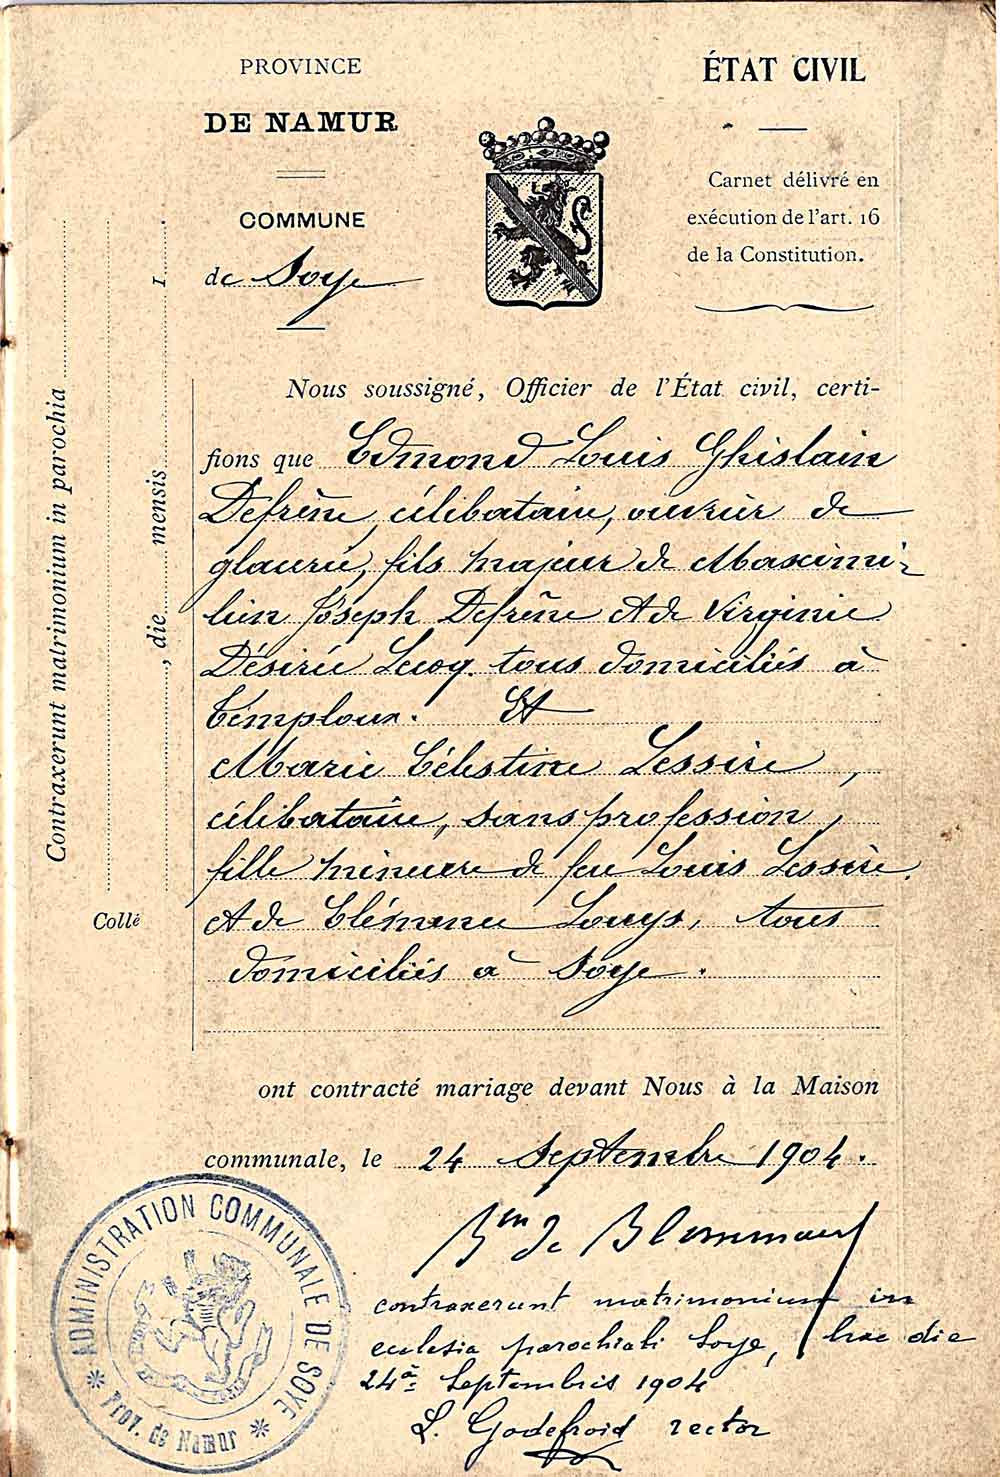 PROVINCE
DE NAMUR
COMMUNE
de Soye
ÉTAT CIVIL
Carnet délivré en
exécution de l'art. 16
de la Constitution.
Contraxerunt matrimonium in parochia
, die mensis 1
Collé
Nous soussigné, Officier de l'État civil, certi-
fions que Edmond Louis Ghislain
Defrène, célibataire, ouvrier de
glacerie, fils majeur de Maximi-
lien Joseph Defrène et de Virginie
Désirée Lecoq tous domiciliés à
Temploux. Et
Marie Célestine Lessire,
célibataire, sans profession,
fille mineure de feu Louis Lessire,
et de Clémence Louys, tous
domiciliés à Soye.
ont contracté mariage devant Nous à la Maison
communale, le 24 Septembre 1904.
Bon de Blommaert
contraxerunt matrimonium in
eclesia parochiali Soye, hac die
24a Septembris 1904
L. Godefroid rector
* ADMINISTRATION COMMUNALE DE SOYE *
Prov. de Namur